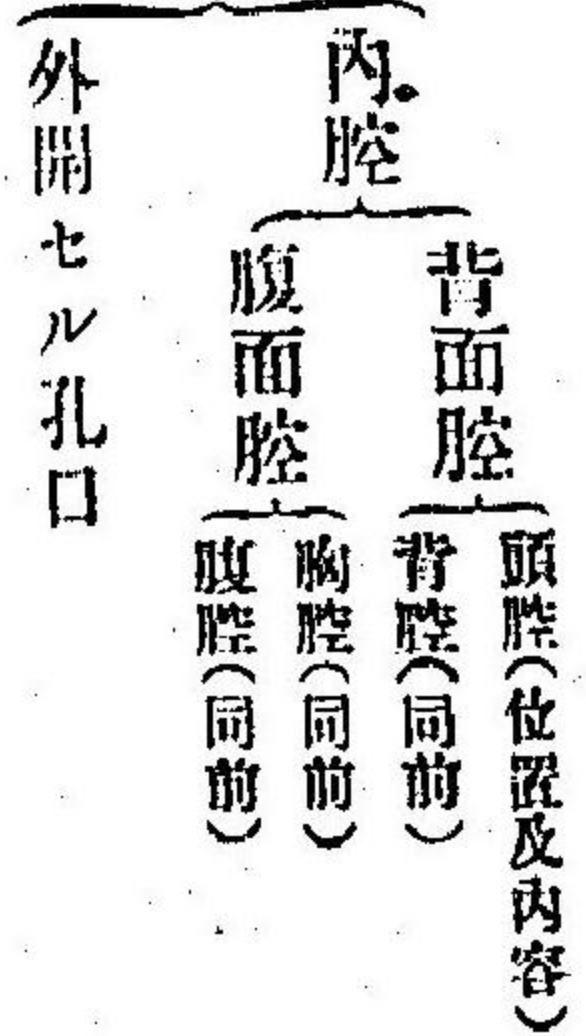 內腔
背面腔
頭腔(位置及內容)
背腔(同前)
腹面腔
胸腔(同前)
腹腔(同前)
外開セル孔口